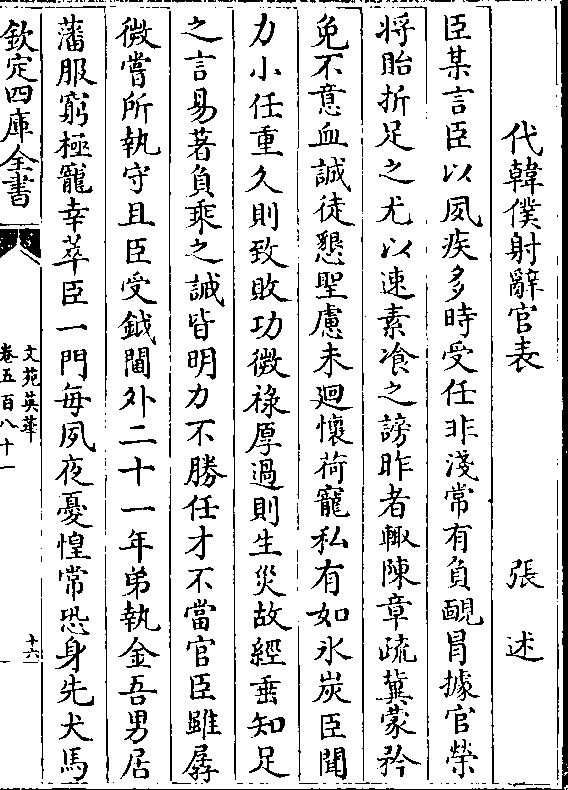 代韓僕射辭官表 張述
臣某言臣以夙疾多時受任非淺常有負靦冒據官榮
將貽折足之尤以速素飡之謗昨者輙陳章疏冀蒙矜
免不意血誠徒懇聖慮未迴懷荷寵私有如氷炭臣聞
力小任重久則致敗功微祿厚過則生災故經垂知足
之言易著負乘之誡皆明力不勝任才不當官臣雖孱
微嘗所執守且臣受鉞閫外二十一年弟執金吾男居
藩服窮極寵幸萃臣一門每夙夜憂惶常恐身先犬馬
欽定四庫全書
文苑英華
卷五百八十一
十六